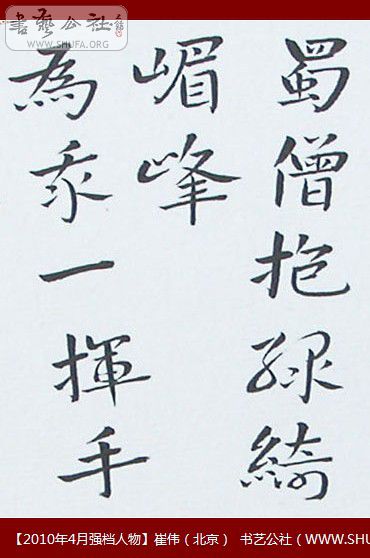 書藝公社
WWW.SHUFA.ORG
蜀僧抱綠綺
嵋峰
為我一揮手
【2010年4月强档人物】崔伟（北京） 书艺公社（WWW.SHU